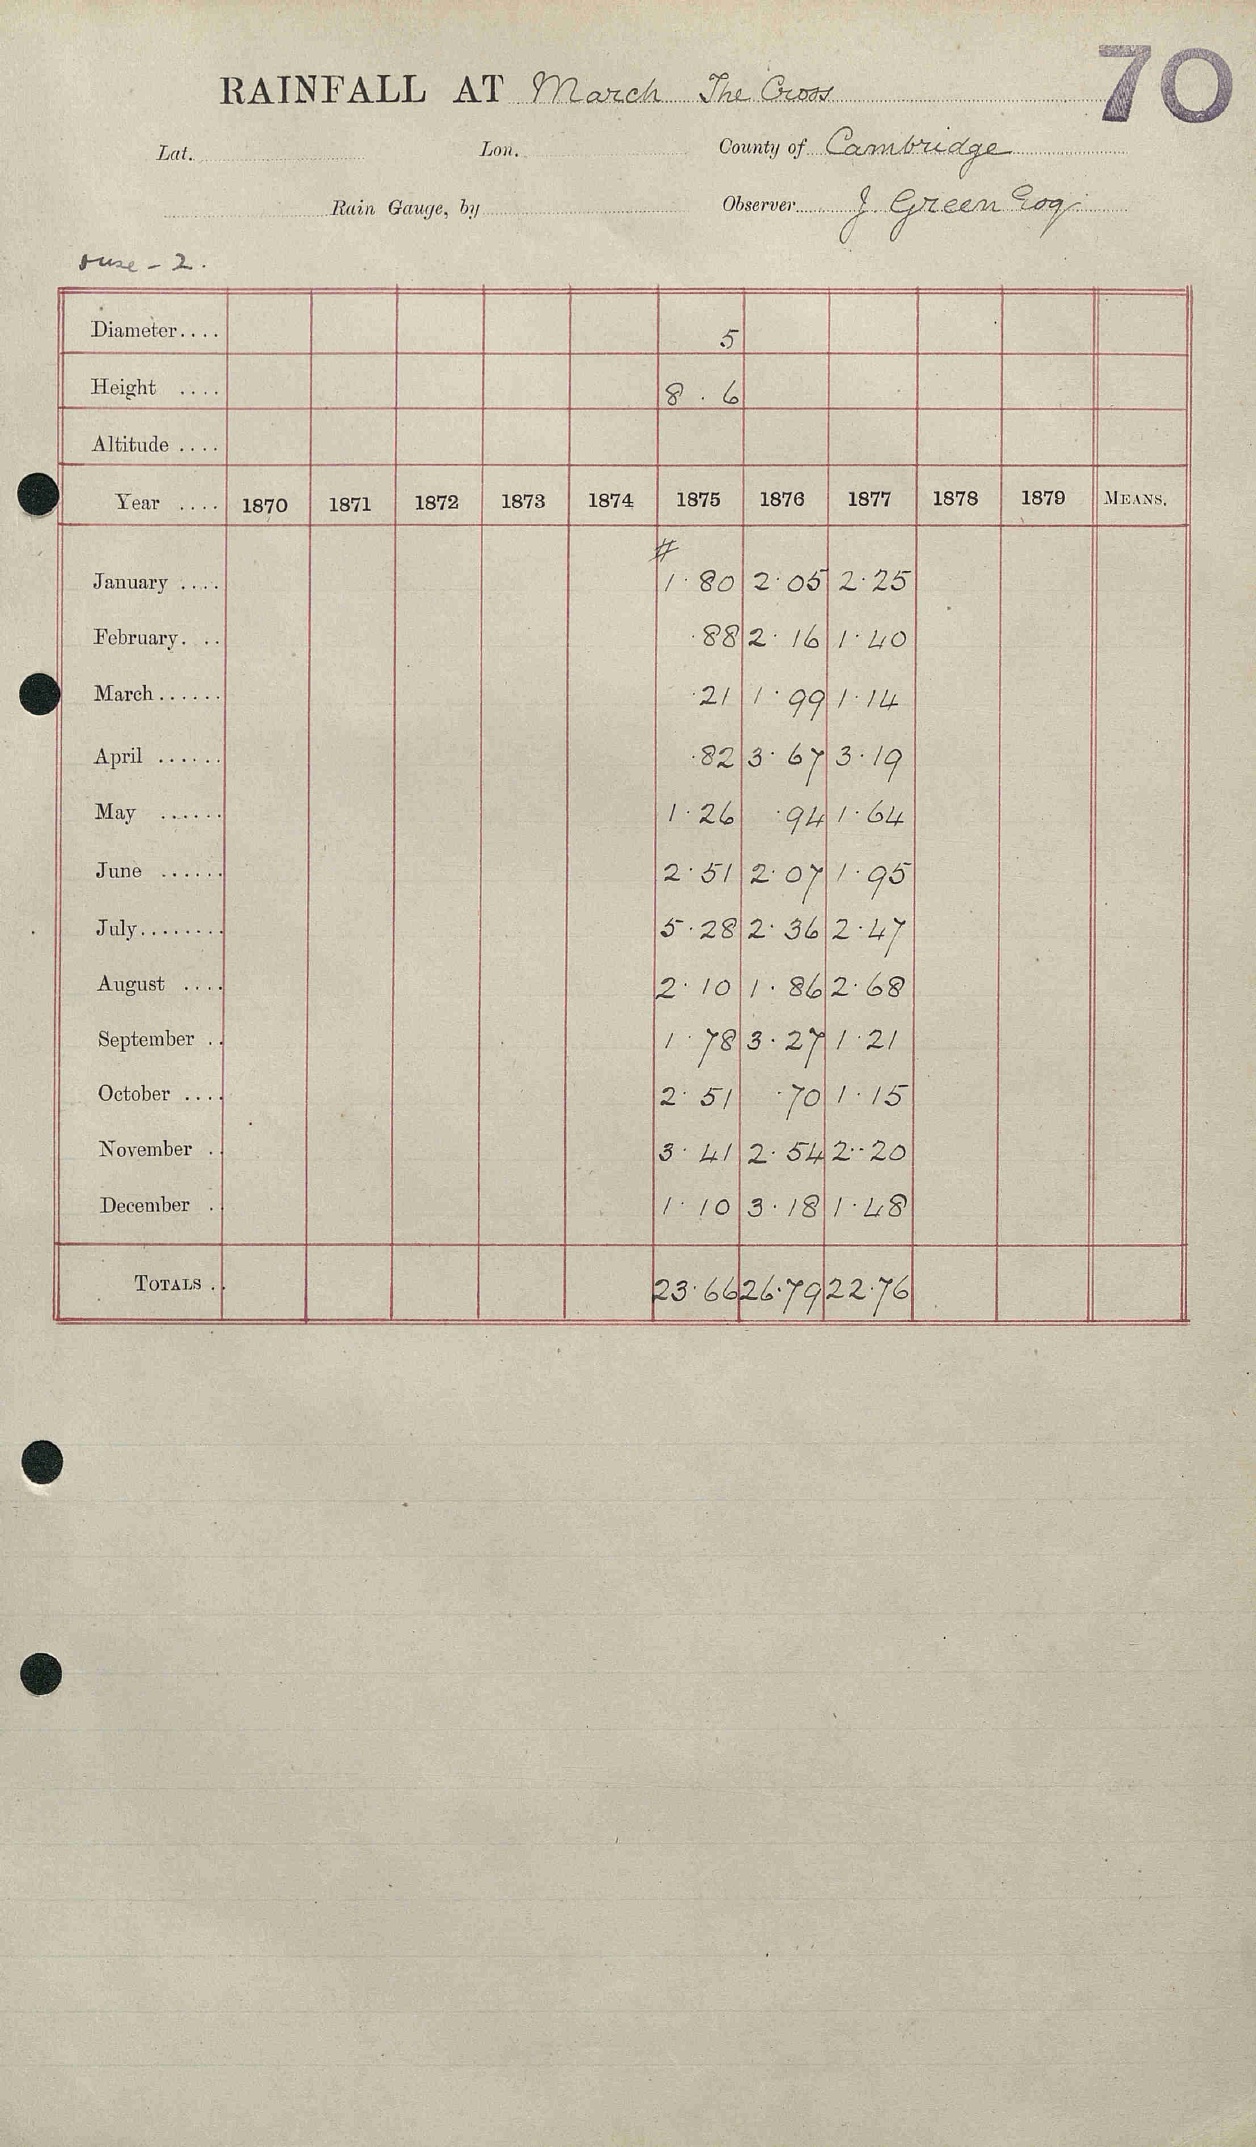 70
RAINFALL AT March The Cross
Lat. Lon. County of Cambridge
Rain Gauge, by Observer J. Green Esq
ouse - 2.
Diameter.... 5
Height .... 8 . 6
Altitude ....
Year .... 1870 1871 1872 1873 1874 1875 1876 1877 1878 1879 MEANS.
#
January .... 1.80 2.05 2.25
February. .. .88 2.16 1.40
March...... .21 1.99 1.14
April ...... .82 3.67 3.19
May ...... 1.26 .94 1.64
June ...... 2.51 2.07 1.95
July........ 5.28 2.36 2.47
August .... 2.10 1.86 2.68
September .. 1.78 3.27 1.21
October .... 2.51 .70 1.15
November . 3.41 2.54 2.20
December . 1.10 3.18 1.48
TOTALS .. 23.66 26.79 22.76